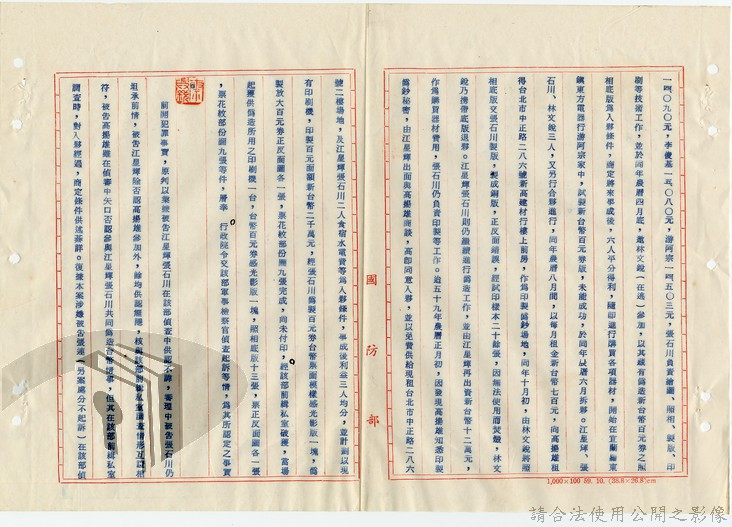 一四〇九〇元，李俊嘉一五〇八〇元，游阿宗一四五〇三元，張石川負責繪圖、照相、製版、印
刷等技術工作，並於同年農曆四月底，邀林文銳（在逃）參加，以其藏有偽造新台幣百元券之照
相底版為入夥條件，商定將來事成後，六人平分得利，隨即進行購買各項器材，開始在宜蘭羅東
鎮東方電器行游阿宗家中，試製新台幣百元券版，未能成功，於同年農曆六月拆夥。江星輝、張
石川、林文銳三人，又另行合夥進行，同年農曆八月間，以每月租金新台幣七百元，向高揚雄租
得台北市中正路二八六號新高建材行樓上前房，作為印製偽鈔場地，同年十月初，由林文銳將照
相底版交張石川製版，製成銅版，正反面錯誤，經試印樣本二十餘張，因無法使用而焚燬，林文
銳乃携帶底版退夥。江星輝張石川則仍繼續進行偽造工作。並由江星輝再出資新台幣十二萬元，
作為購買器材費用，張石川仍負責印製等工作。迨五十九年農曆正月初，因發現高揚雄知悉印製
偽鈔秘密，由江星輝出面與高揚雄商談，高即同意入夥，並以免費供給現租台北市中正路二八六
國防部
號二樓場地，及江星輝張石川二人食宿水電費等為入夥條件，事成後利益三人均分，並計劃以現
有印刷機，印製百元面額新台幣二千萬元，經張石川偽製百元券台幣票面模樣感光影版一塊，偽
製放大百元券正反面圖各一張，票花紋部份圖九張完成，尚未付印，經該部前緝私室破獲，當場
起獲供偽造所用之印刷機一台，台幣百元券感光影版一塊，照相底版十三張，票正反面圖各一張
，票花紋部份圖九張等件，層奉 行政院令交該部軍事檢察官偵查起訴等情，為其所認定之事實
前開犯罪事實，原判以業據被告江星輝張石川在該部偵查中供認不諱，審理中被告張石川仍
坦承前情，被告江星輝除否認高揚雄參加外，餘均供認無隱，核與該部前緝私室調查情形互相
符，被告高揚雄雖在偵審中矢口否認參與江星輝張石川共同偽造台幣情事，但其在該部前緝私室
調查時，對入夥經過，商定條件供述甚詳。復據本案涉嫌被告張連（另案處分不起訴）在該部偵
1,000×100 59. 10. (38.8×26.8)cm
請合法使用公開之影像